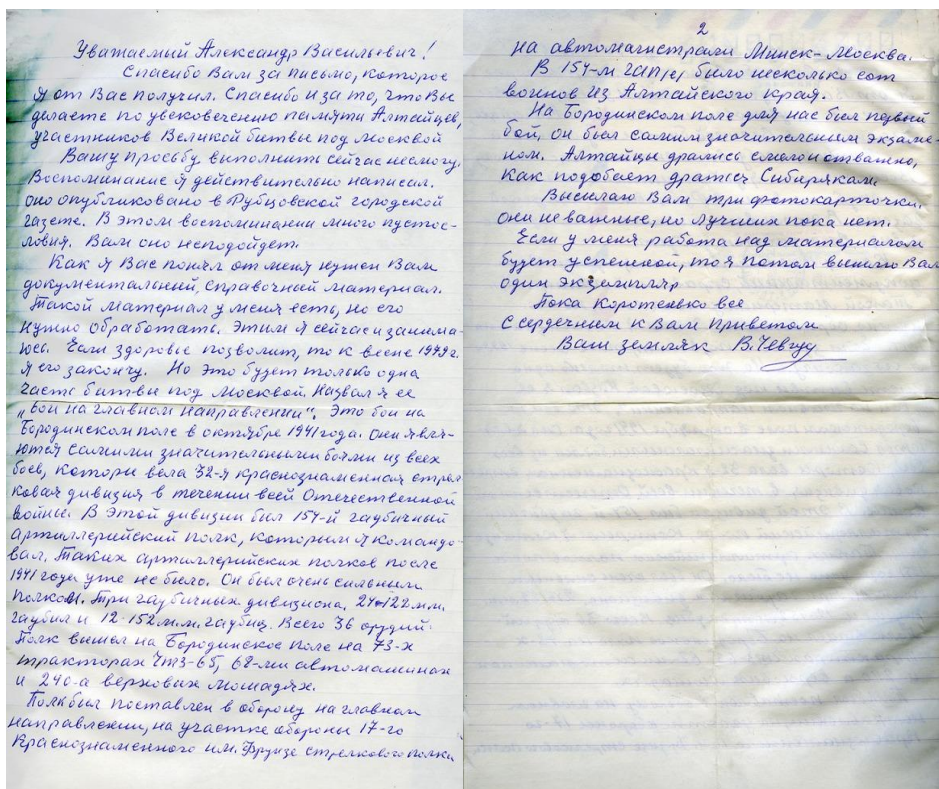 Уважаемый Александр Васильевич!
Спасибо Вам за письмо, которое
я от Вас получил. Спасибо и за то, что Вы
делаете по увековечению памяти Алтайцев,
участников Великой битвы под Москвой
Вашу просьбу выполнить сейчас несмогу.
Воспоминание я действительно написал.
Оно опубликовано в Рубцовской городской
газете. В этом воспоминании много пустос-
ловия. Вам оно неподойдет.
Как я Вас понял от меня нужен Вам
документальный, справочный материал.
Такой материал у меня есть, но его
нужно обработать. Этим я сейчас и занима-
юсь. Если здоровье позволит, то к весне 1979 г.
я его закончу. Но это будет только одна
часть битвы под Москвой. Назвал я ее
„Бои на главном направлении". Это бои на
Бородинском поле в октябре 1941 года. Они явля-
ются самыми значительными боями из всех
боев, которые вела 32-я краснознаменная стрел
ковая дивизия в течении всей Отечественной
войны. В этой дивизии был 154-й гаубичный
артиллерийский полк, которым я командо-
вал. Таких артиллерийских полков после
1941 года уже не было. Он был очень сильным
полком. Три гаубичных дивизиона. 24-122 м.м.
гаубиц и 12-152 м.м. гаубиц. Всего 36 орудий.
Полк вышел на Бородинское поле на 73-х
тракторах ЧТЗ-65, 68-ми автомашинах
и 240-а верховых лошадях.
Полк был поставлен в оборону на главном
направлении, на участке обороны 17-го
Краснознаменного им. Фрунзе стрелкового полка
2
на автомагистрали Минск-Москва.
В 154-м гап, было несколько сот
воинов из Алтайского края.
На Бородинском поле для нас был первый
бой, он был самым значительным экзаме-
ном. Алтайцы дрались смело и отважно,
как подобает драться Сибирякам.
Высилаю Вам три фотокарточки.
Они не важные, но лучших пока нет.
Если у меня работа над материалом
будет успешной, то я потом вышлю Вам
один экземпляр
Пока коротенько все
С сердечным к Вам приветом
Ваш земляк В. Чевгус